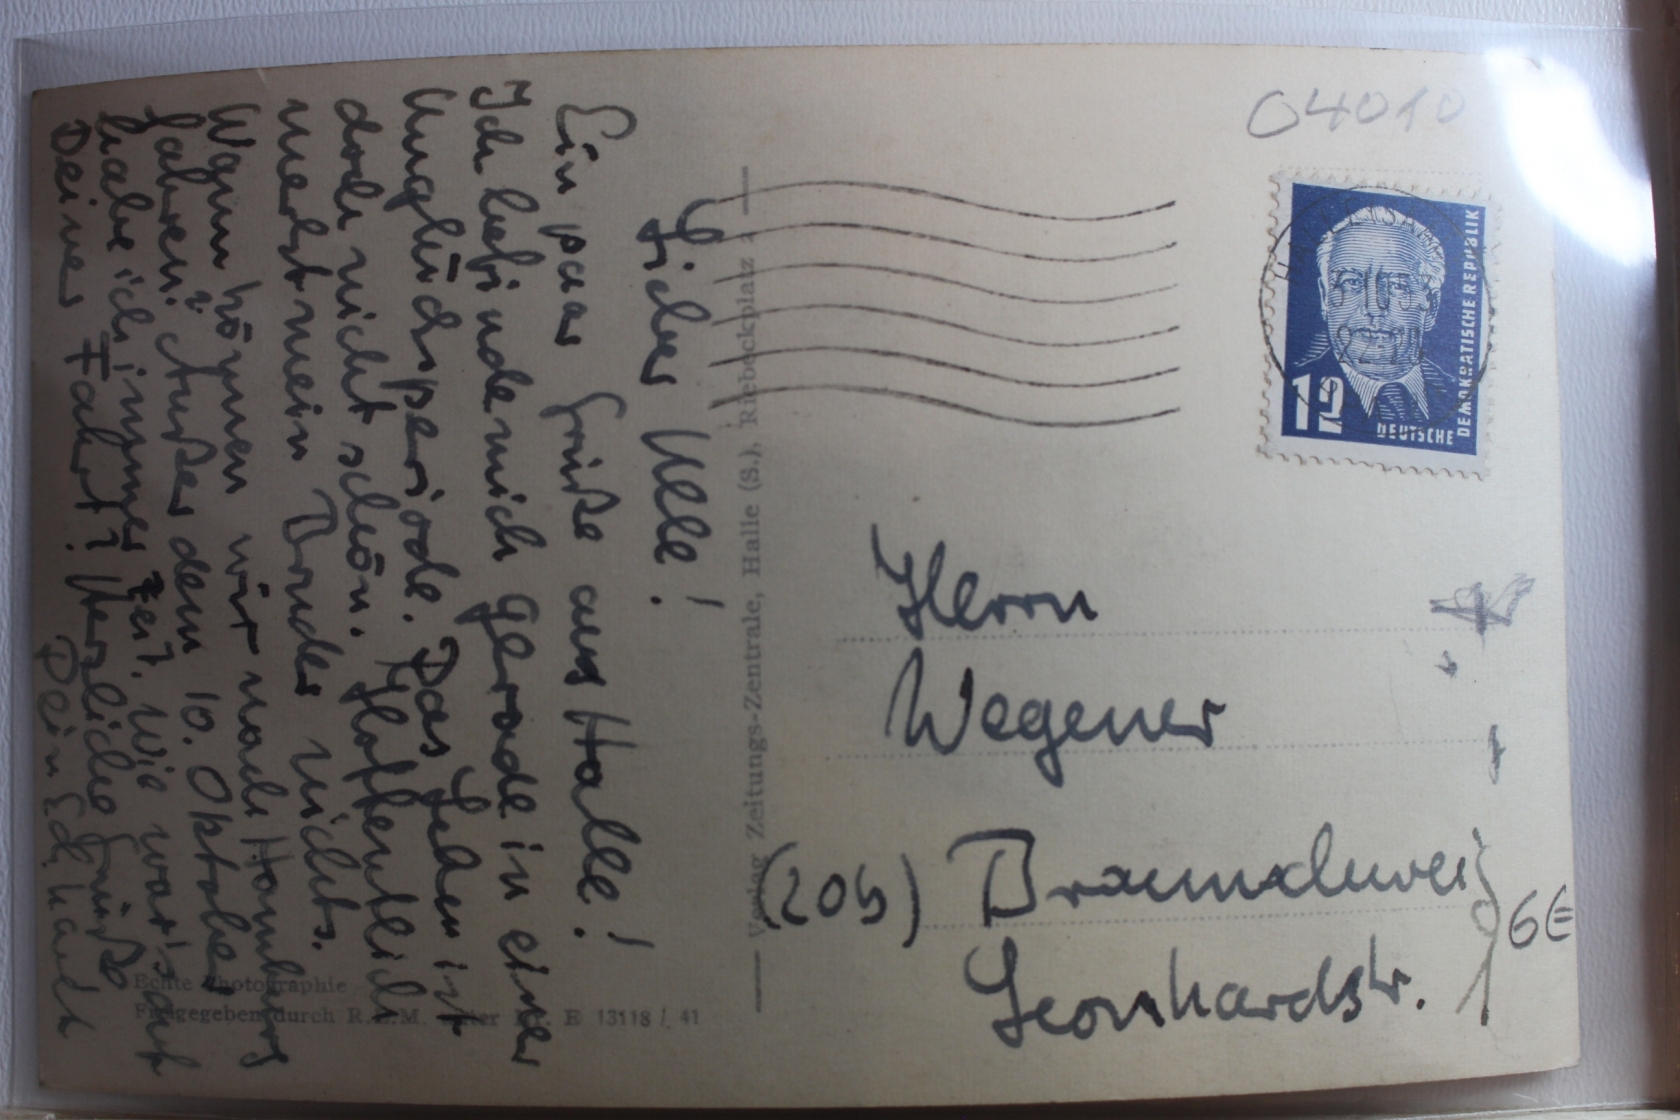 Lieber Ulle!
Ein paar Grüße aus Halle!
Ich befinde mich gerade in einer
Unglücksperiode. Das Leben ist
doch nicht schön. Hoffentlich
merkt mein Bruder nichts.
Wann können wir nach Hamburg
fahren? Außer dem 10. Oktober
habe ich immer Zeit. Wie war's auf
Deiner Fahrt? Herzliche Grüße
Dein Eckhardt
Verlag Zeitungs-Zentrale, Halle (S.), Riebeckplatz 2
Echte Photographie
Freigegeben durch R.L.M. unter Nr. E 13118/41
04010
12
DEUTSCHE
DEMOKRATISCHE REPUBLIK
Herrn
Wegener
(20b) Braunschweig
Leonhardstr.
6€